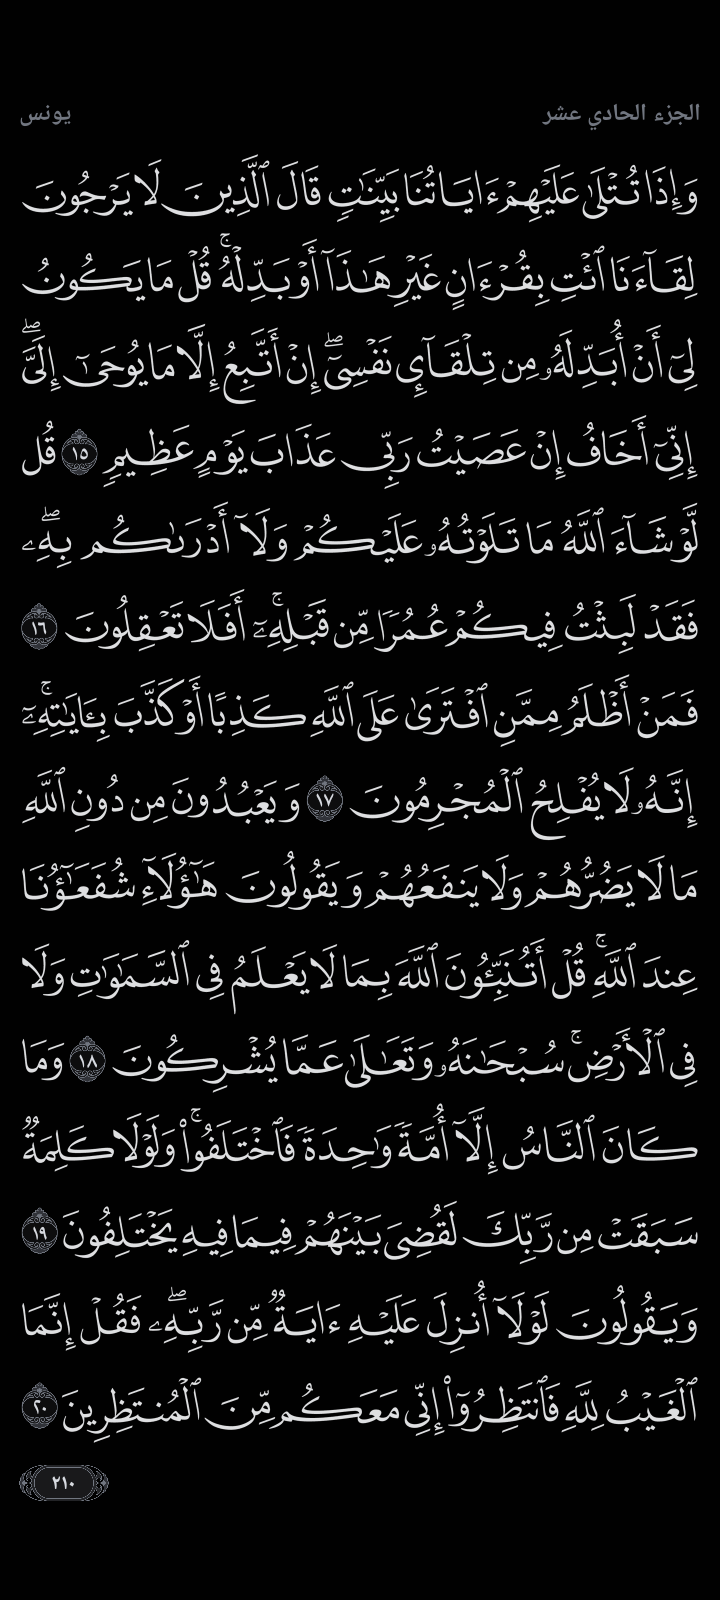 الجزء الحادي عشر
يونس
وَإِذَا تُتْلَىٰ عَلَيْهِمْ ءَايَاتُنَا بَيِّنَٰتٍ قَالَ ٱلَّذِينَ لَا يَرْجُونَ
لِقَآءَنَا ٱئْتِ بِقُرْءَانٍ غَيْرِ هَٰذَآ أَوْ بَدِّلْهُ ۚ قُلْ مَا يَكُونُ
لِىٓ أَنْ أُبَدِّلَهُۥ مِن تِلْقَآئِ نَفْسِىٓ ۖ إِنْ أَتَّبِعُ إِلَّا مَا يُوحَىٰٓ إِلَىَّ ۖ
إِنِّىٓ أَخَافُ إِنْ عَصَيْتُ رَبِّى عَذَابَ يَوْمٍ عَظِيمٍ ١٥ قُل
لَّوْ شَآءَ ٱللَّهُ مَا تَلَوْتُهُۥ عَلَيْكُمْ وَلَآ أَدْرَىٰكُم بِهِۦ ۖ
فَقَدْ لَبِثْتُ فِيكُمْ عُمُرًا مِّن قَبْلِهِۦٓ ۚ أَفَلَا تَعْقِلُونَ ١٦
فَمَنْ أَظْلَمُ مِمَّنِ ٱفْتَرَىٰ عَلَى ٱللَّهِ كَذِبًا أَوْ كَذَّبَ بِـَٔايَٰتِهِۦٓ ۚ
إِنَّهُۥ لَا يُفْلِحُ ٱلْمُجْرِمُونَ ١٧ وَيَعْبُدُونَ مِن دُونِ ٱللَّهِ
مَا لَا يَضُرُّهُمْ وَلَا يَنفَعُهُمْ وَيَقُولُونَ هَٰٓؤُلَآءِ شُفَعَٰٓؤُنَا
عِندَ ٱللَّهِ ۚ قُلْ أَتُنَبِّـُٔونَ ٱللَّهَ بِمَا لَا يَعْلَمُ فِى ٱلسَّمَٰوَٰتِ وَلَا
فِى ٱلْأَرْضِ ۚ سُبْحَٰنَهُۥ وَتَعَٰلَىٰ عَمَّا يُشْرِكُونَ ١٨ وَمَا
كَانَ ٱلنَّاسُ إِلَّآ أُمَّةً وَٰحِدَةً فَٱخْتَلَفُوا۟ ۚ وَلَوْلَا كَلِمَةٌ
سَبَقَتْ مِن رَّبِّكَ لَقُضِىَ بَيْنَهُمْ فِيمَا فِيهِ يَخْتَلِفُونَ ١٩
وَيَقُولُونَ لَوْلَآ أُنزِلَ عَلَيْهِ ءَايَةٌ مِّن رَّبِّهِۦ ۖ فَقُلْ إِنَّمَا
ٱلْغَيْبُ لِلَّهِ فَٱنتَظِرُوٓا۟ إِنِّى مَعَكُم مِّنَ ٱلْمُنتَظِرِينَ ٢٠
٢١٠